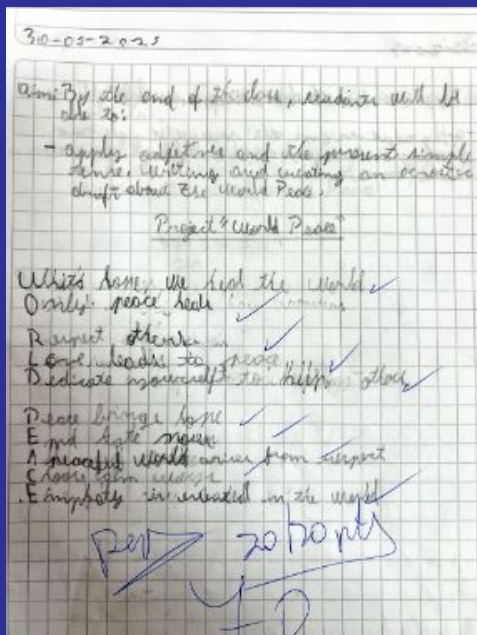 30-05-2025
Aim: By the end of the class, students will be
able to:
- apply adjetives and the present simple
tense, writing and creating an acrostic
draft about the World Peace.
Project "World Peace"
we heal the world
Only peace heals
Respect others
Love leads to peace
Dedicate yourself to others
Peace brings hope
End hate
A peaceful world comes from respect
Choose
Empathy is needed in the world
20/20 pts